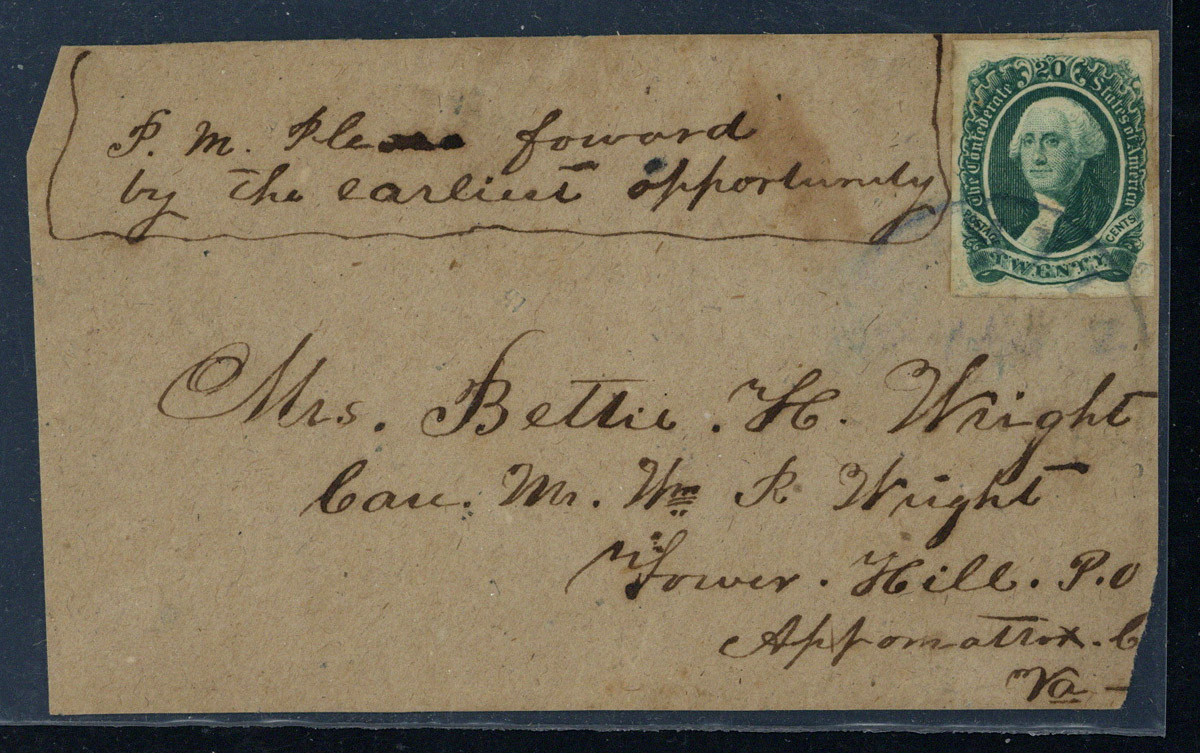 P. M. Please foward
by the earliest opportunity
20
The Confederate States of America
POSTAGE
CENTS
TWENTY
Mrs. Bettie. H. Wright
Care. Mr. Wm R Wright
Tower. Hill. P.O
Appomattox. C
Va -